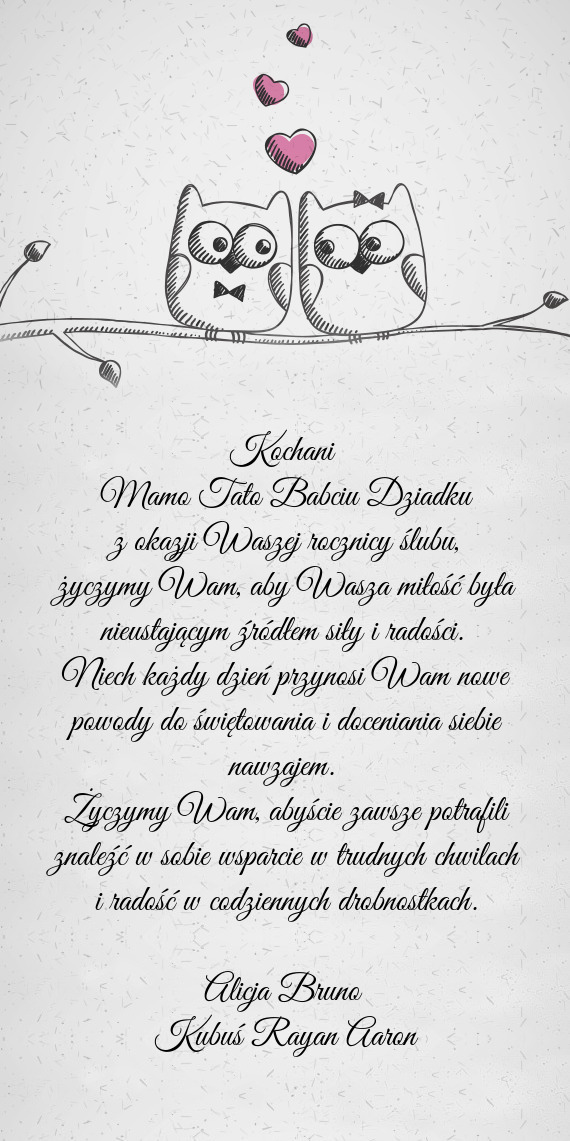 Kochani
Mamo Tato Babciu Dziadku
z okazji Waszej rocznicy ślubu,
życzymy Wam, aby Wasza miłość była
nieustającym źródłem siły i radości.
Niech każdy dzień przynosi Wam nowe
powody do świętowania i doceniania siebie
nawzajem.
Życzymy Wam, abyście zawsze potrafili
znaleźć w sobie wsparcie w trudnych chwilach
i radość w codziennych drobnostkach.
Alicja Bruno
Kubuś Rayan Aaron